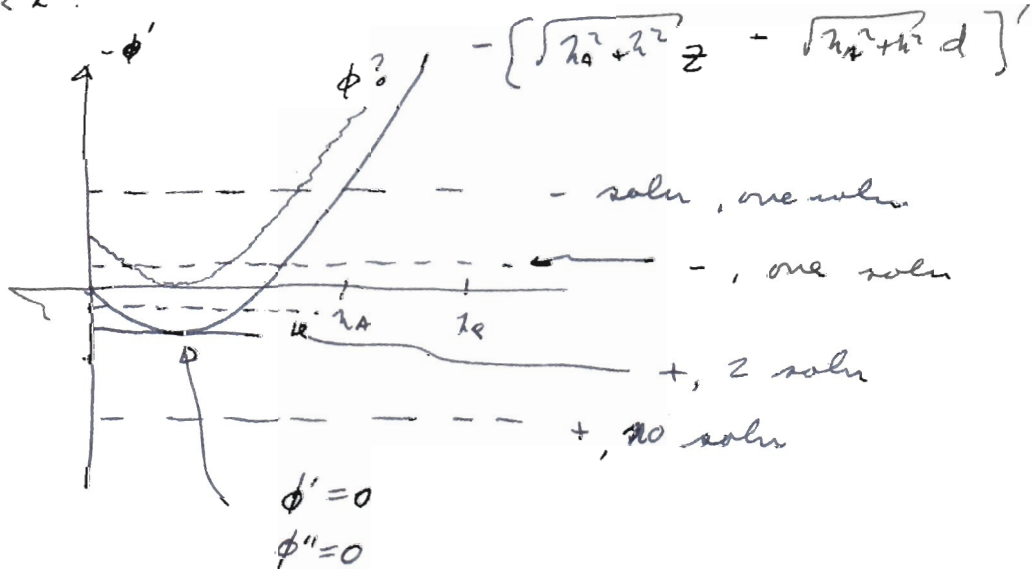 -ϕ'
ϕ?
-[√(h_A² + h²) z - √(h_A² + h²) d]'
- soln, one soln
-, one soln
h_A
+, 2 soln
+, no soln
ϕ' = 0
ϕ'' = 0